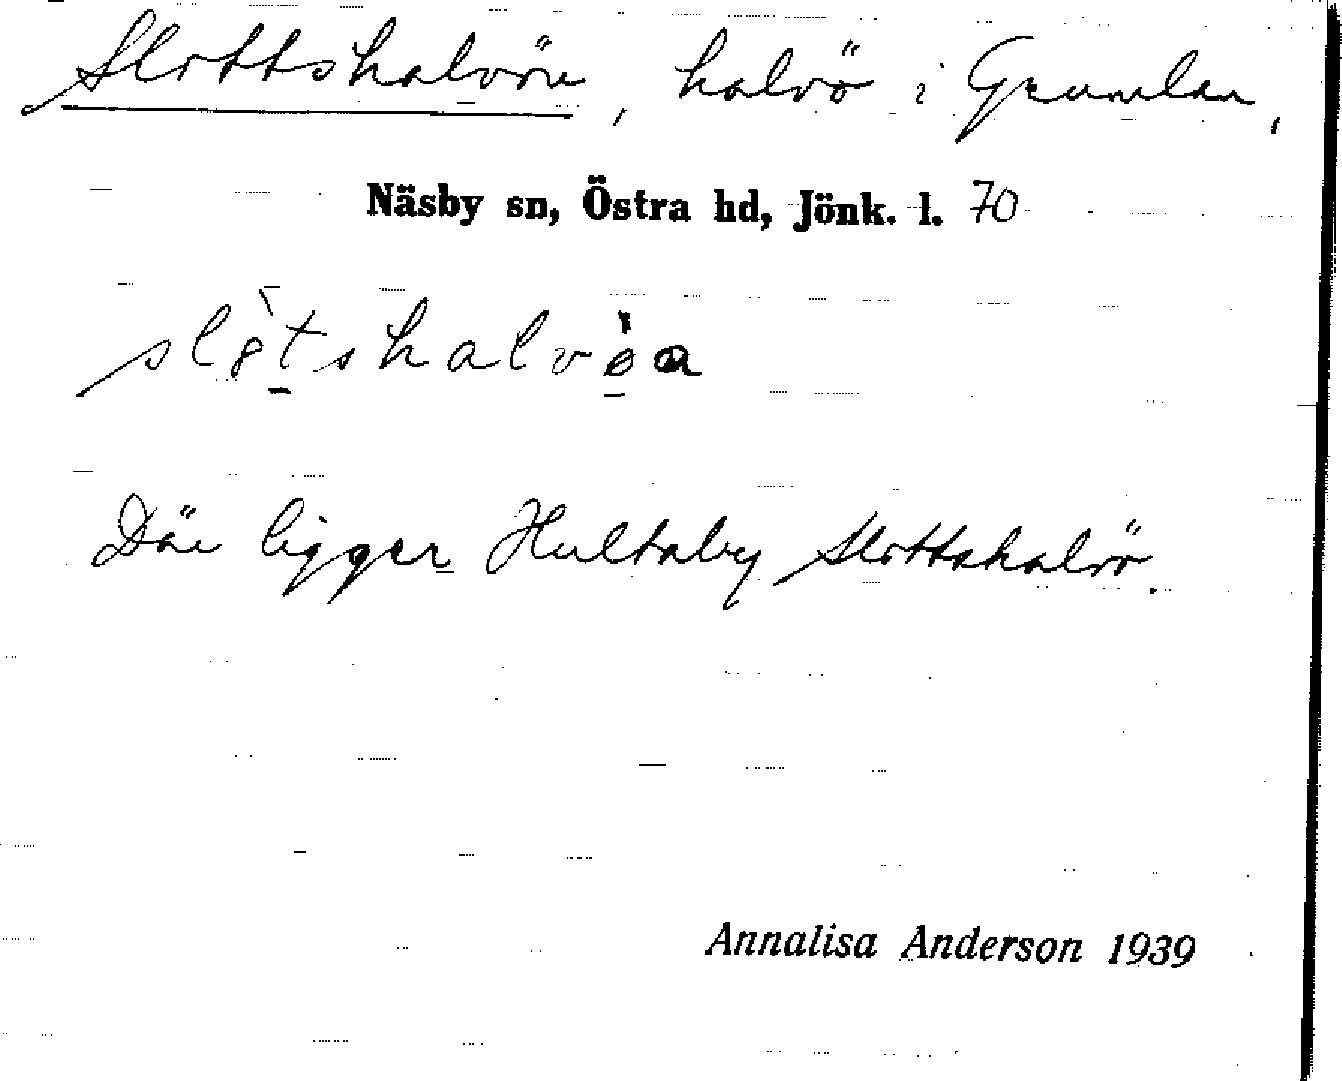 Slottshalvön, halvö i Grumlan,
Näsby sn, Östra hd, Jönk. l. 70
Där ligger Hultaby Slottshalvö.
Annalisa Anderson 1939